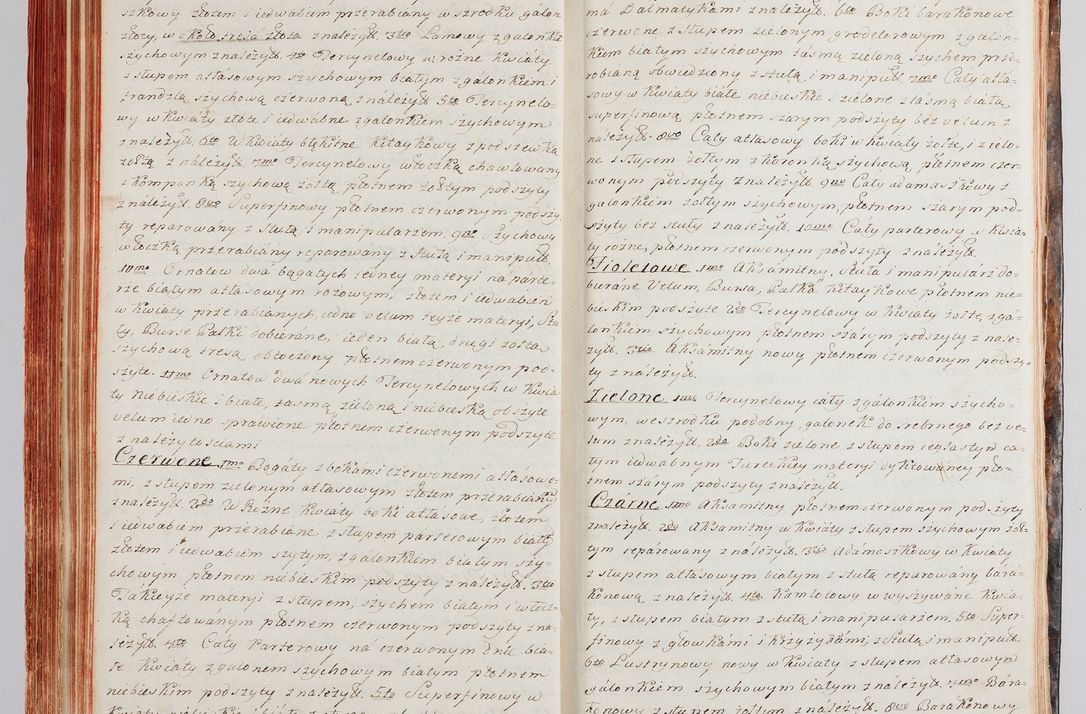 szkowy złotem i iedwabiem przerabiany w szrodku galon
złoty, w około tresa złota z należyt. 3tio Lamowy z galonkie
szychowym z należyt. 4to Tercynelowy w rożne kwiaty
z stupem atłasowym szychowym białym z galonkiem i
frandzlą szychową czerwoną z należyt. 5to Tercynelo-
wy w kwiaty złote i iedwabne z galonkiem szychowym
z należyt. 6to W kwiaty błękitne kitaykowy z podszewką
żołtą z należyt. 7mo Tercynelowy włoczką chawtowany
z komponką szychową żołtą, płotnem żołtym podszyty
z należyt. 8vo Superfinowy płotnem czerwonym podszy-
ty reparowany z stułą i manipularzem. 9no Szychowy
włoczką przerabiany reparowany z stułą i manipult.
10mo Ornatow dwa bogatych iedney materyi na parte-
rze białym atłasowym rożowym, złotem i iedwabiem
w kwiaty przerabianych, iedno velum teyże materyi, Stu
ły, Bursę Palki dobierane, ieden białą, drugi żołtą
szychową tresą obtoczony płotnem czerwonym pod-
szyte. 11mo Ornatow dwa nowych Tercynelowych w kwia-
ty niebieskie i białe, tasmą zieloną i niebieską obszyte
velum iedno sprawione płotnem czerwonym podszyte
z należytościami
Czerwone 1mo Bogaty z bokami czerwonemi atłasowe-
mi, z stupem zielonym atłasowym złotem przerabiany
z należyt. 2do W Rożne kwiaty boki atłasowe, złotem
i iedwabiem przerabiane z stupem parterowym białą
złotem i iedwabiem szytym, z galonkiem białym szy-
chowym płotnem niebieskim podszyty z należyt. 3tio
Takieyże materyi z stupem, szychem białym i włocz-
ką chaftowanym płotnem czerwonym podszyty z na-
leżyt. 4to Cały Parterowy na czerwonym dnie bia-
łe kwiaty z galonem szychowym białym płotnem
niebieskim podszyty z należyt. 5to Superfinowy w
ma Dalmatykami z należyt. 6to Boki barakonowe
czerwone z stupem zielonym grodelorowym z galon-
kiem białym szychowym tasmą zieloną szychem prze-
robianą obwiedziony z stułą i manipult. 7mo Cały atła-
sowy w kwiaty białe niebieskie i zielone z tasmą białą
superfinową, płotnem szarym podszyty bez velum z
należyt. 8vo Cały atłasowy boki w kwiaty żołte, i zielo-
ne z stupem żołtym z koronką szychową, płotnem czer-
wonym podszyty z należyt. 9no Cały adamaszkowy z
galonkiem żołtym szychowym, płotnem szarym pod-
szyty bez stuły z należyt. 10mo Cały parterowy w kwia-
ty rożne, płotnem czerwonym podszyty z należyt.
Fioletowe 1mo Aksamitny, stuła i manipularz do-
bierane Velum, Bursa, Palka kitaykowe płotnem nie-
bieskim podszyte 2do Tercynelowy w kwiaty żołte, z ga-
lonkiem szychowym płotnem szarym podszyty z nale-
żyt. 3tio Aksamitny nowy płotnem czerwonym podszy-
ty z należyt.
Zielone 1mo Tercynelowy cały z galonkiem szycho-
wym, we szrodku podobny, galonek do srebrnego bez ve-
lum z należyt. 2do Boki zielone z stupem ceglastym ca-
łym iedwabnym Tureckiey materyi dyktowaney pło-
tnem szarym podszyty z należyt.
Czarne 1mo Aksamitny płotnem czerwonym podszyty
z należyt. 2do Aksamitny w kwiaty z stupem szychowym żoł-
tym reparowany z należyt. 3tio Adamaszkowy w kwiaty
z stupem atłasowym białym z stułą reparowany bara-
konową z należyt. 4to Kamlotowy w wyszywane kwia-
ty, z stupem białym z stułą i manipularzem. 5to Super-
finowy z głowkami i krzyżykami, z stułą i manipult.
6to Lustrynowy nowy w kwiaty z stupem atłasowym
galonkiem szychowym białym z należyt. 7mo Bara-
konowy z stupem żołtym z należyt. 8vo Barakonowy